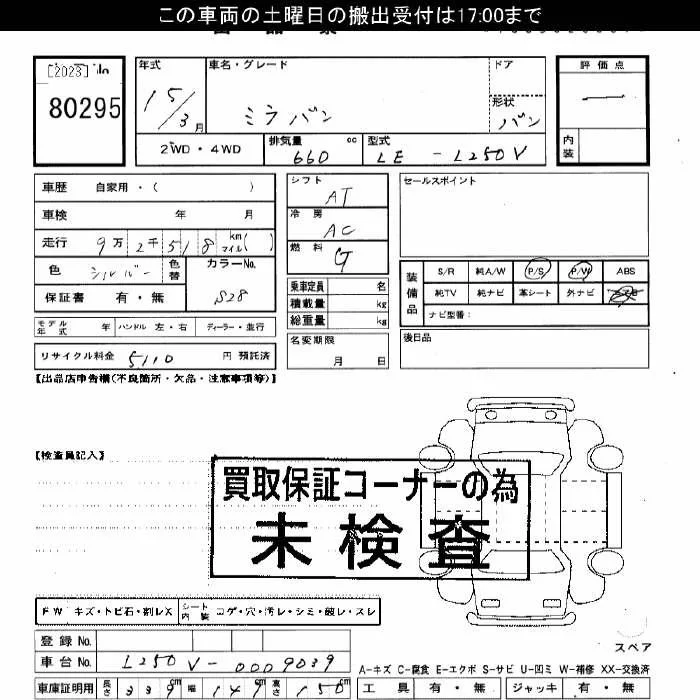 この車両の土曜日の搬出受付は17:00まで
[2023] No
80295
年式 15/3月
車名・グレード ミラバン
ドア
形状 バン
評価点 —
内装
2WD・4WD
排気量 660 cc
型式 LE - L250V
車歴 自家用・( )
車検 年 月
走行 9万 2千 518 km マイル( )
色 シルバー 色替
カラーNo. S28
保証書 有・無
モデル年式 年 ハンドル 左・右 ディーラー・並行
リサイクル料金 5110 円 預託済
シフト AT
冷房 AC
燃料 G
乗車定員 名
積載量 kg
総重量 kg
名変期限 月 日
セールスポイント
装備品
S/R 純A/W P/S P/W ABS
純TV 純ナビ 革シート 外ナビ
ナビ型番:
後日品
【出品店申告欄(不良箇所・欠品・注意事項等)】
【検査員記入】
買取保証コーナーの為
未検査
FW キズ・トビ石・割レX
シート内装 コゲ・穴・汚レ・シミ・破レ・スレ
スペア
登録No.
車台No. L250V-0009039
車庫証明用 長さ 339cm 幅 147cm 高さ 150cm
A-キズ C-腐食 E-エクボ S-サビ U-凹ミ W-補修 XX-交換済
工具 有・無 ジャッキ 有・無